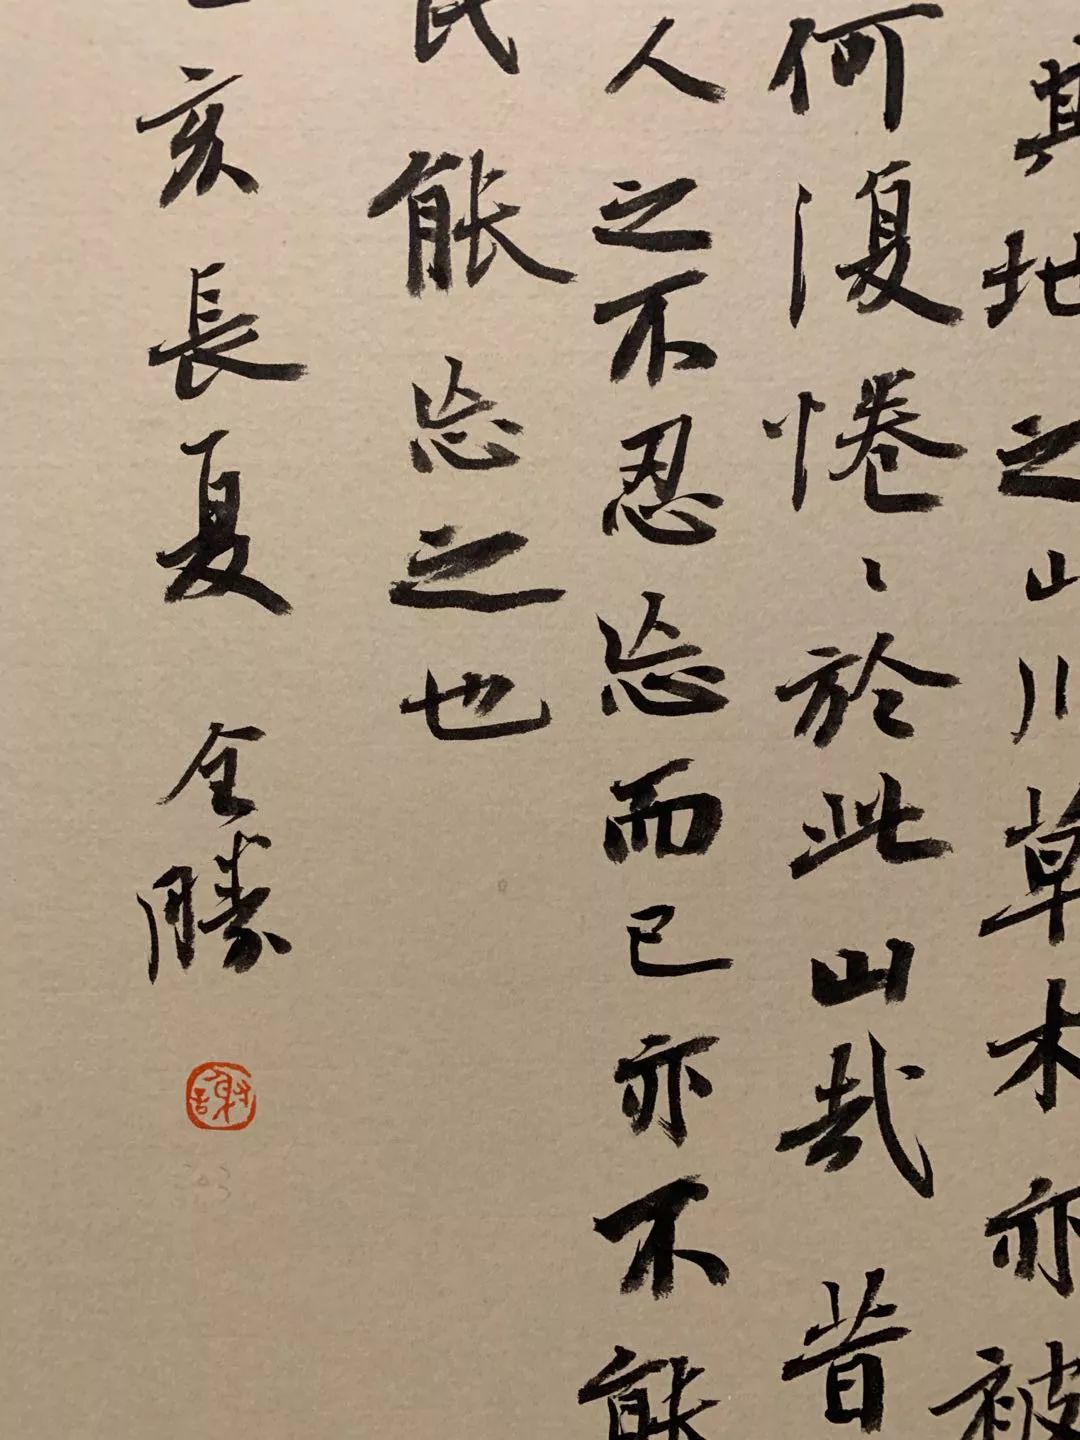 其地之山川草木亦被
何復惓〻於此山哉昔
人之不忍忘而已亦不能
民能忘之也
亥長夏全勝
謝